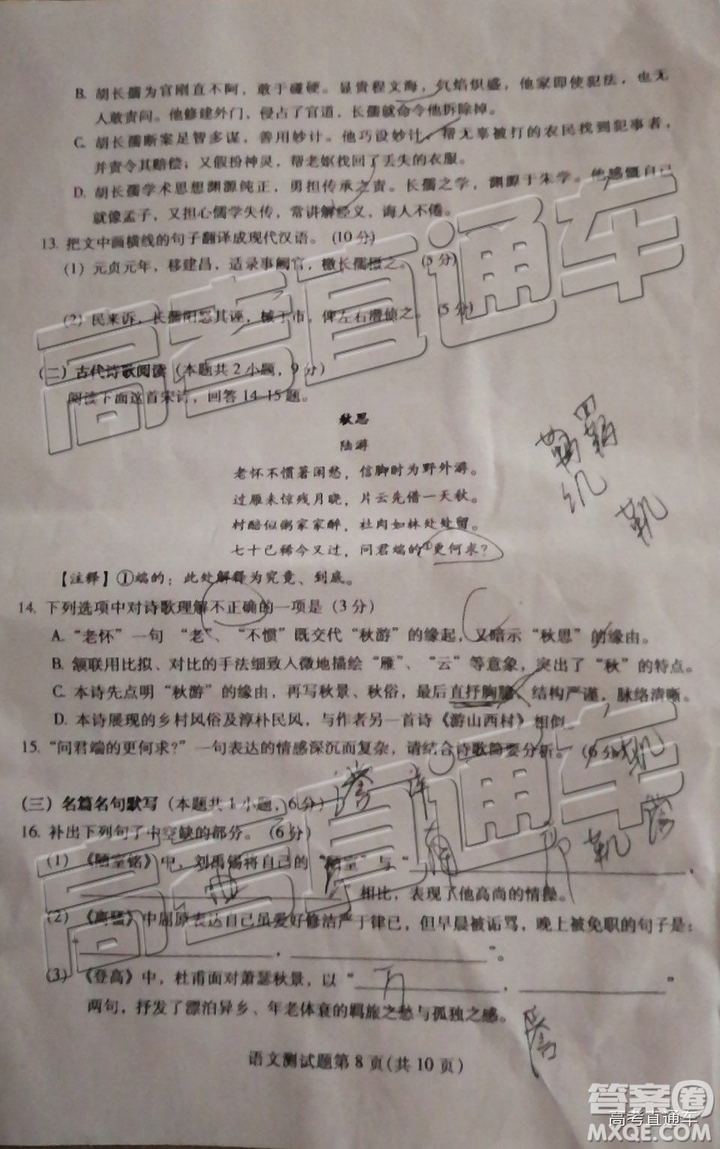 B. 胡长孺为官刚直不阿，敢于碰硬。显贵程文海，气焰炽盛，他家即使犯法，也无
人敢责问。他修建外门，侵占了官道，长孺就命令他拆除掉。
C. 胡长孺断案足智多谋，善用妙计。他巧设妙计，帮无辜被打的农民找到犯事者，
并责令其赔偿；又假扮神灵，帮老妪找回了丢失的衣服。
D. 胡长孺学术思想渊源纯正，勇担传承之责。长孺之学，渊源于朱学。他感慨
就像孟子，又担心儒学失传，常讲解经义，诲人不倦。
13. 把文中画横线的句子翻译成现代汉语。（10 分）
（1）元贞元年，移建昌，适录事阙官，檄长孺摄之。（5 分）
（2）民来诉，长孺阳怒其诬，械于市，俾左右潜侦之。（5 分）
（二）古代诗歌阅读（本题共 2 小题，9 分）
阅读下面这首宋诗，回答 14-15 题。
秋思
陆游
老怀不惯著闲愁，信脚时为野外游。
过雁未惊残月晓，片云先借一天秋。
村醅似粥家家醉，社肉如林处处留。
七十已稀今又过，问君端的①更何求？
【注释】①端的：此处解释为究竟、到底。
14. 下列选项中对诗歌理解不正确的一项是（3 分）
A. “老怀”一句 “老”、“不惯”既交代“秋游”的缘起，又暗示“秋思”的缘由。
B. 颔联用比拟、对比的手法细致入微地描绘“雁”、“云”等意象，突出了“秋”的特点。
C. 本诗先点明“秋游”的缘由，再写秋景、秋俗，最后直抒胸臆，结构严谨，脉络清晰。
D. 本诗展现的乡村风俗及淳朴民风，与作者另一首诗《游山西村》相似。
15. “问君端的更何求？”一句表达的情感深沉而复杂，请结合诗歌简要分析。（6 分）
（三）名篇名句默写（本题共 1 小题，6 分）
16. 补出下列句子中空缺的部分。（6 分）
（1）《陋室铭》中，刘禹锡将自己的“陋室”与“
，
”相比，表现了他高尚的情操。
（2）《离骚》中屈原表达自己虽爱好修洁严于律己，但早晨被诟骂，晚上被免职的句子是：
“ ， ”。
（3）《登高》中，杜甫面对萧瑟秋景，以“ ， ”
两句，抒发了漂泊异乡、年老体衰的羁旅之愁与孤独之感。
语文测试题第 8 页(共 10 页)
高考直通车
高考直通车
答案圈
高考直通车
MXQE.COM